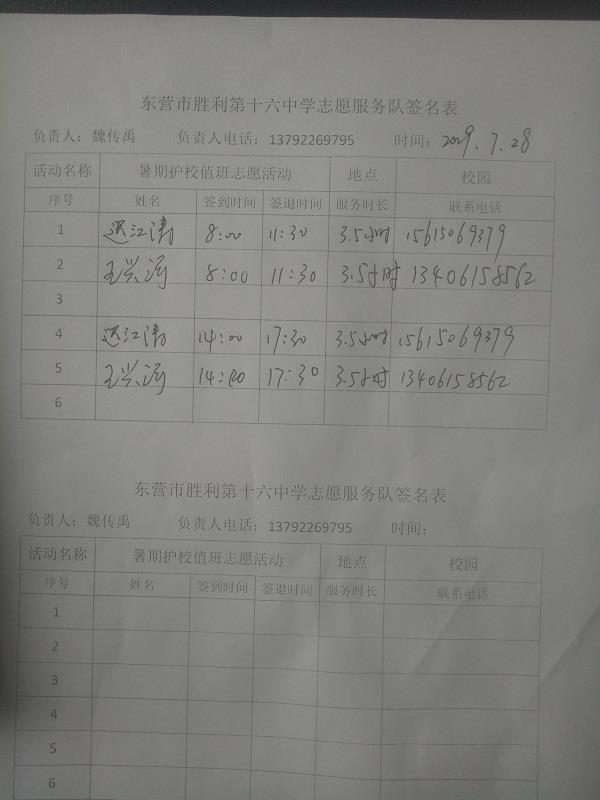 东营市胜利第十六中学志愿服务队签名表
负责人：魏传禹 负责人电话：13792269795 时间：2029.7.28
活动名称 暑期护校值班志愿活动 地点 校园
序号 姓名 签到时间 签退时间 服务时长 联系电话
1 迟江涛 8:00 11:30 3.5小时 15615069379
2 王兴 8:00 11:30 3.5小时 13406158562
3
4 迟江涛 14:00 17:30 3.5小时 15615069379
5 王兴 14:00 17:30 3.5小时 13406158562
6
东营市胜利第十六中学志愿服务队签名表
负责人：魏传禹 负责人电话：13792269795 时间：
活动名称 暑期护校值班志愿活动 地点 校园
序号 姓名 签到时间 签退时间 服务时长 联系电话
1
2
3
4
5
6